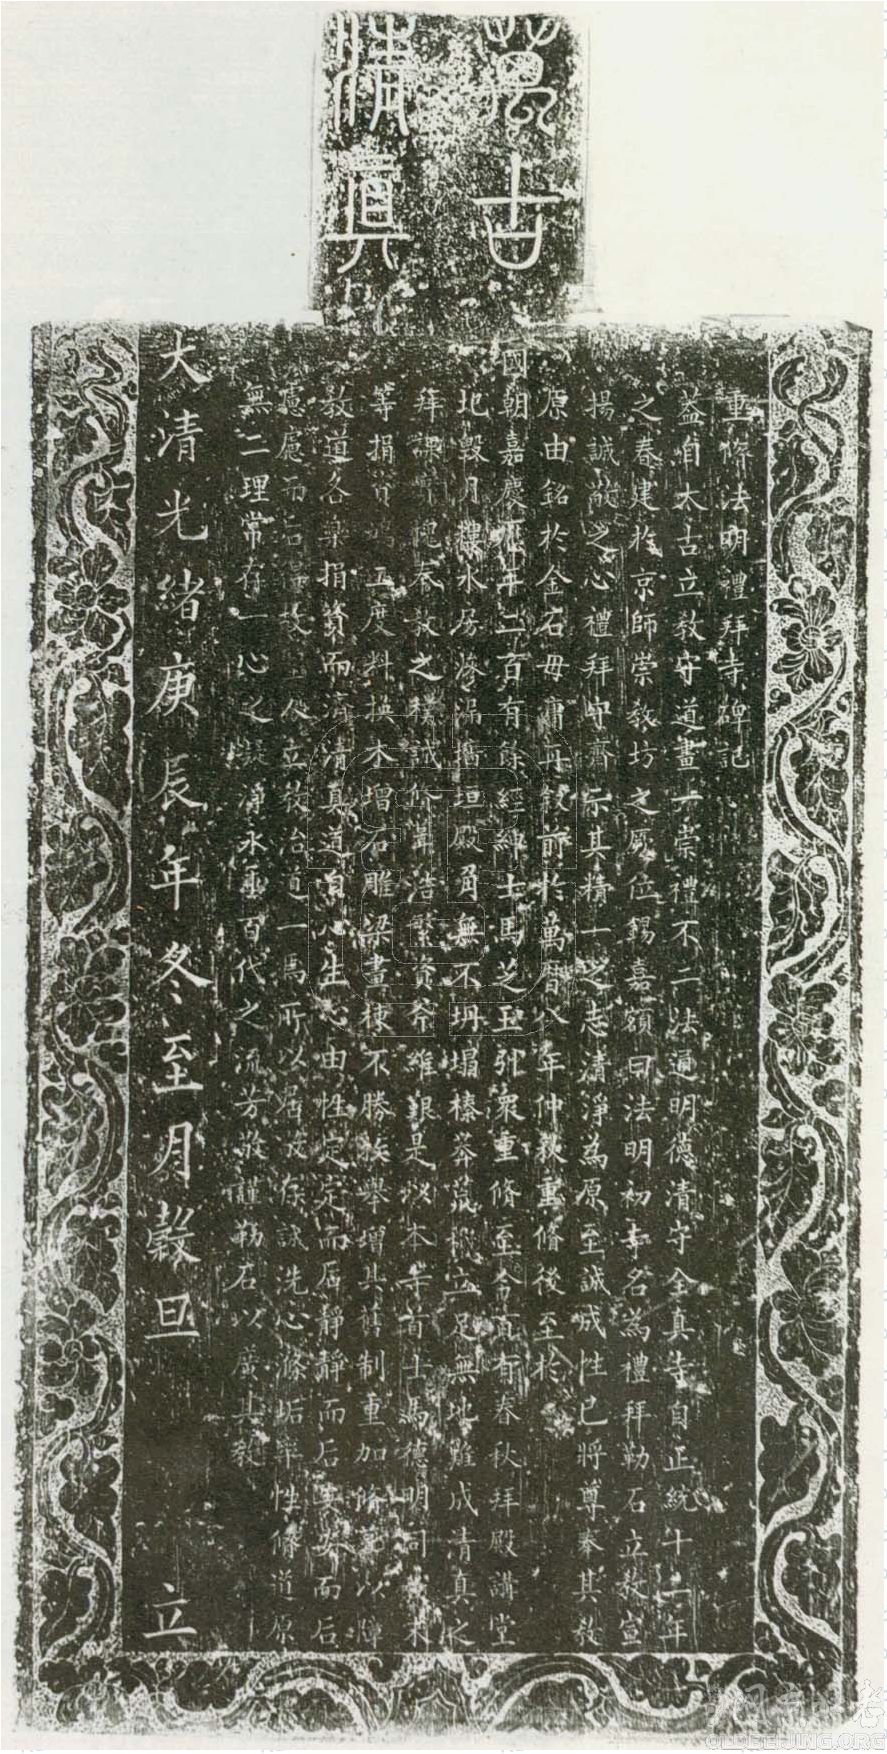 萬古
清真
重修法明禮拜寺碑記
蓋自太古立教守道畫一崇禮不二法通明德清守全真寺自正統十二年
之春建於京師崇教坊之原位錫嘉額曰法明初寺名為禮拜勒石立教宣
揚誠敬之心禮拜守齋示其精一之志清淨為原至誠成性已將尊奉其教
原由銘於金石毋庸再敘前於萬曆八年仲秋重脩後至於
國朝嘉慶年二百有餘經紳士馬芝玉引衆重脩至今百有春秋拜殿講堂
圮毀月樓水房滲漏舊垣殿角無不坍塌榛莽荒穢立足無地難成清真之
拜課奉教之樸誠修葺浩繁資斧維艱是以本寺首士馬德明同
等捐資工度料換木增石雕梁畫棟不勝族舉增其舊制重加脩葺以障
教道各樂捐資而清真道自心生心由性定定而后靜靜而后安安而后
慮慮而后得故立教治道一馬所以居敬存誠洗心滌垢率性脩道原
無二理常存一心之凝淨永垂百代之流芳敬謹勒石以廣其教
大清光緒庚辰年冬至月穀旦 立
OLDBEIJING.ORG